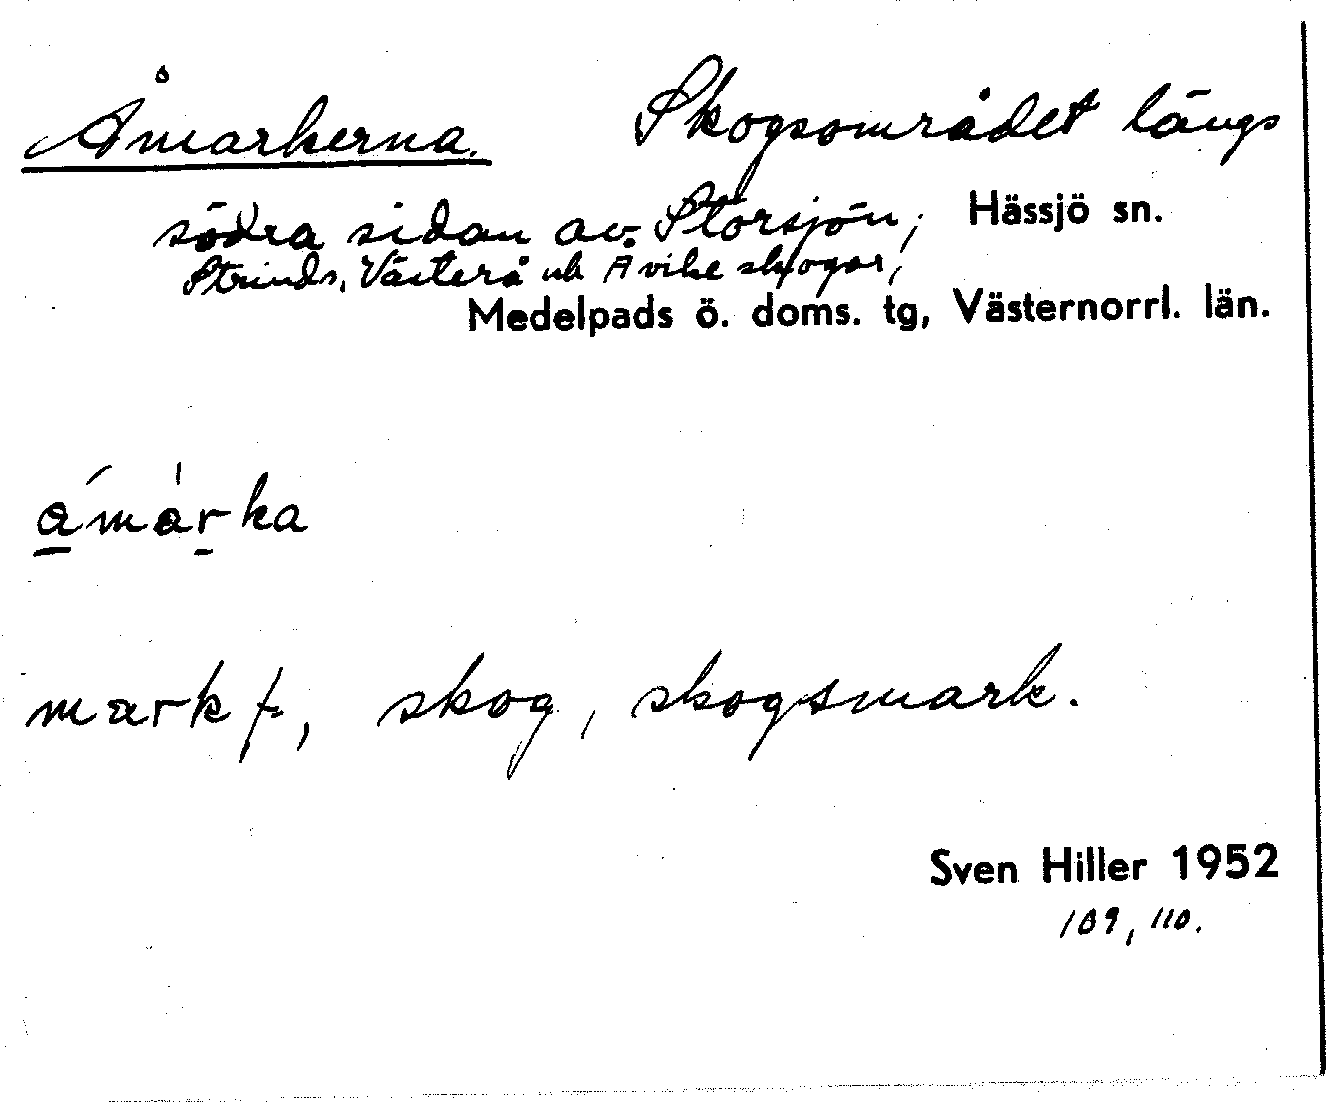 Åmarkerna. Skogsområdet längs
södra sidan av Storsjön, Hässjö sn.
Strinds, Västerå och Avike skogar,
Medelpads ö. doms. tg, Västernorrl. län.
a̲´màr̲ka
mark f, skog, skogsmark.
Sven Hiller 1952
109, 110.